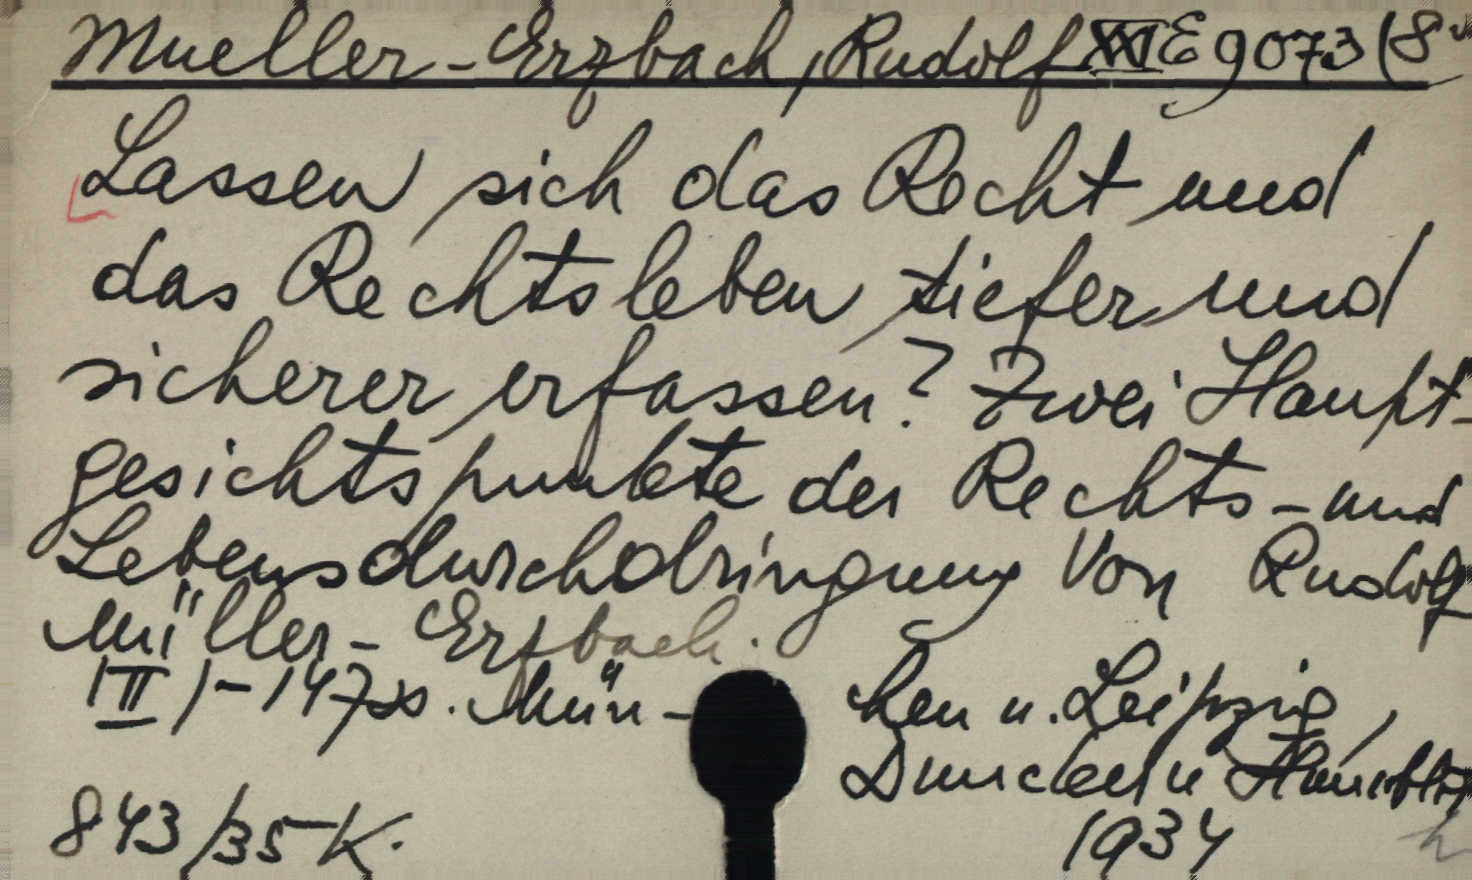 Mueller-Erzbach, Rudolf XXI E 9073 (8°
Lassen sich das Recht und
das Rechtsleben tiefer und
sicherer erfassen? Zwei Haupt-
gesichtspunkte der Rechts- und
Lebensdurchdringung Von Rudolf
Müller-Erzbach.
(II)-147 ss. Mün-chen u. Leipzig,
Duncker u Humblot
843/35 K. 1934